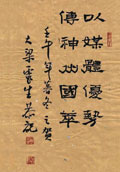 以媒體優勢
傳神州國萃
壬午年暮冬之賀
大梁雲生恭祝